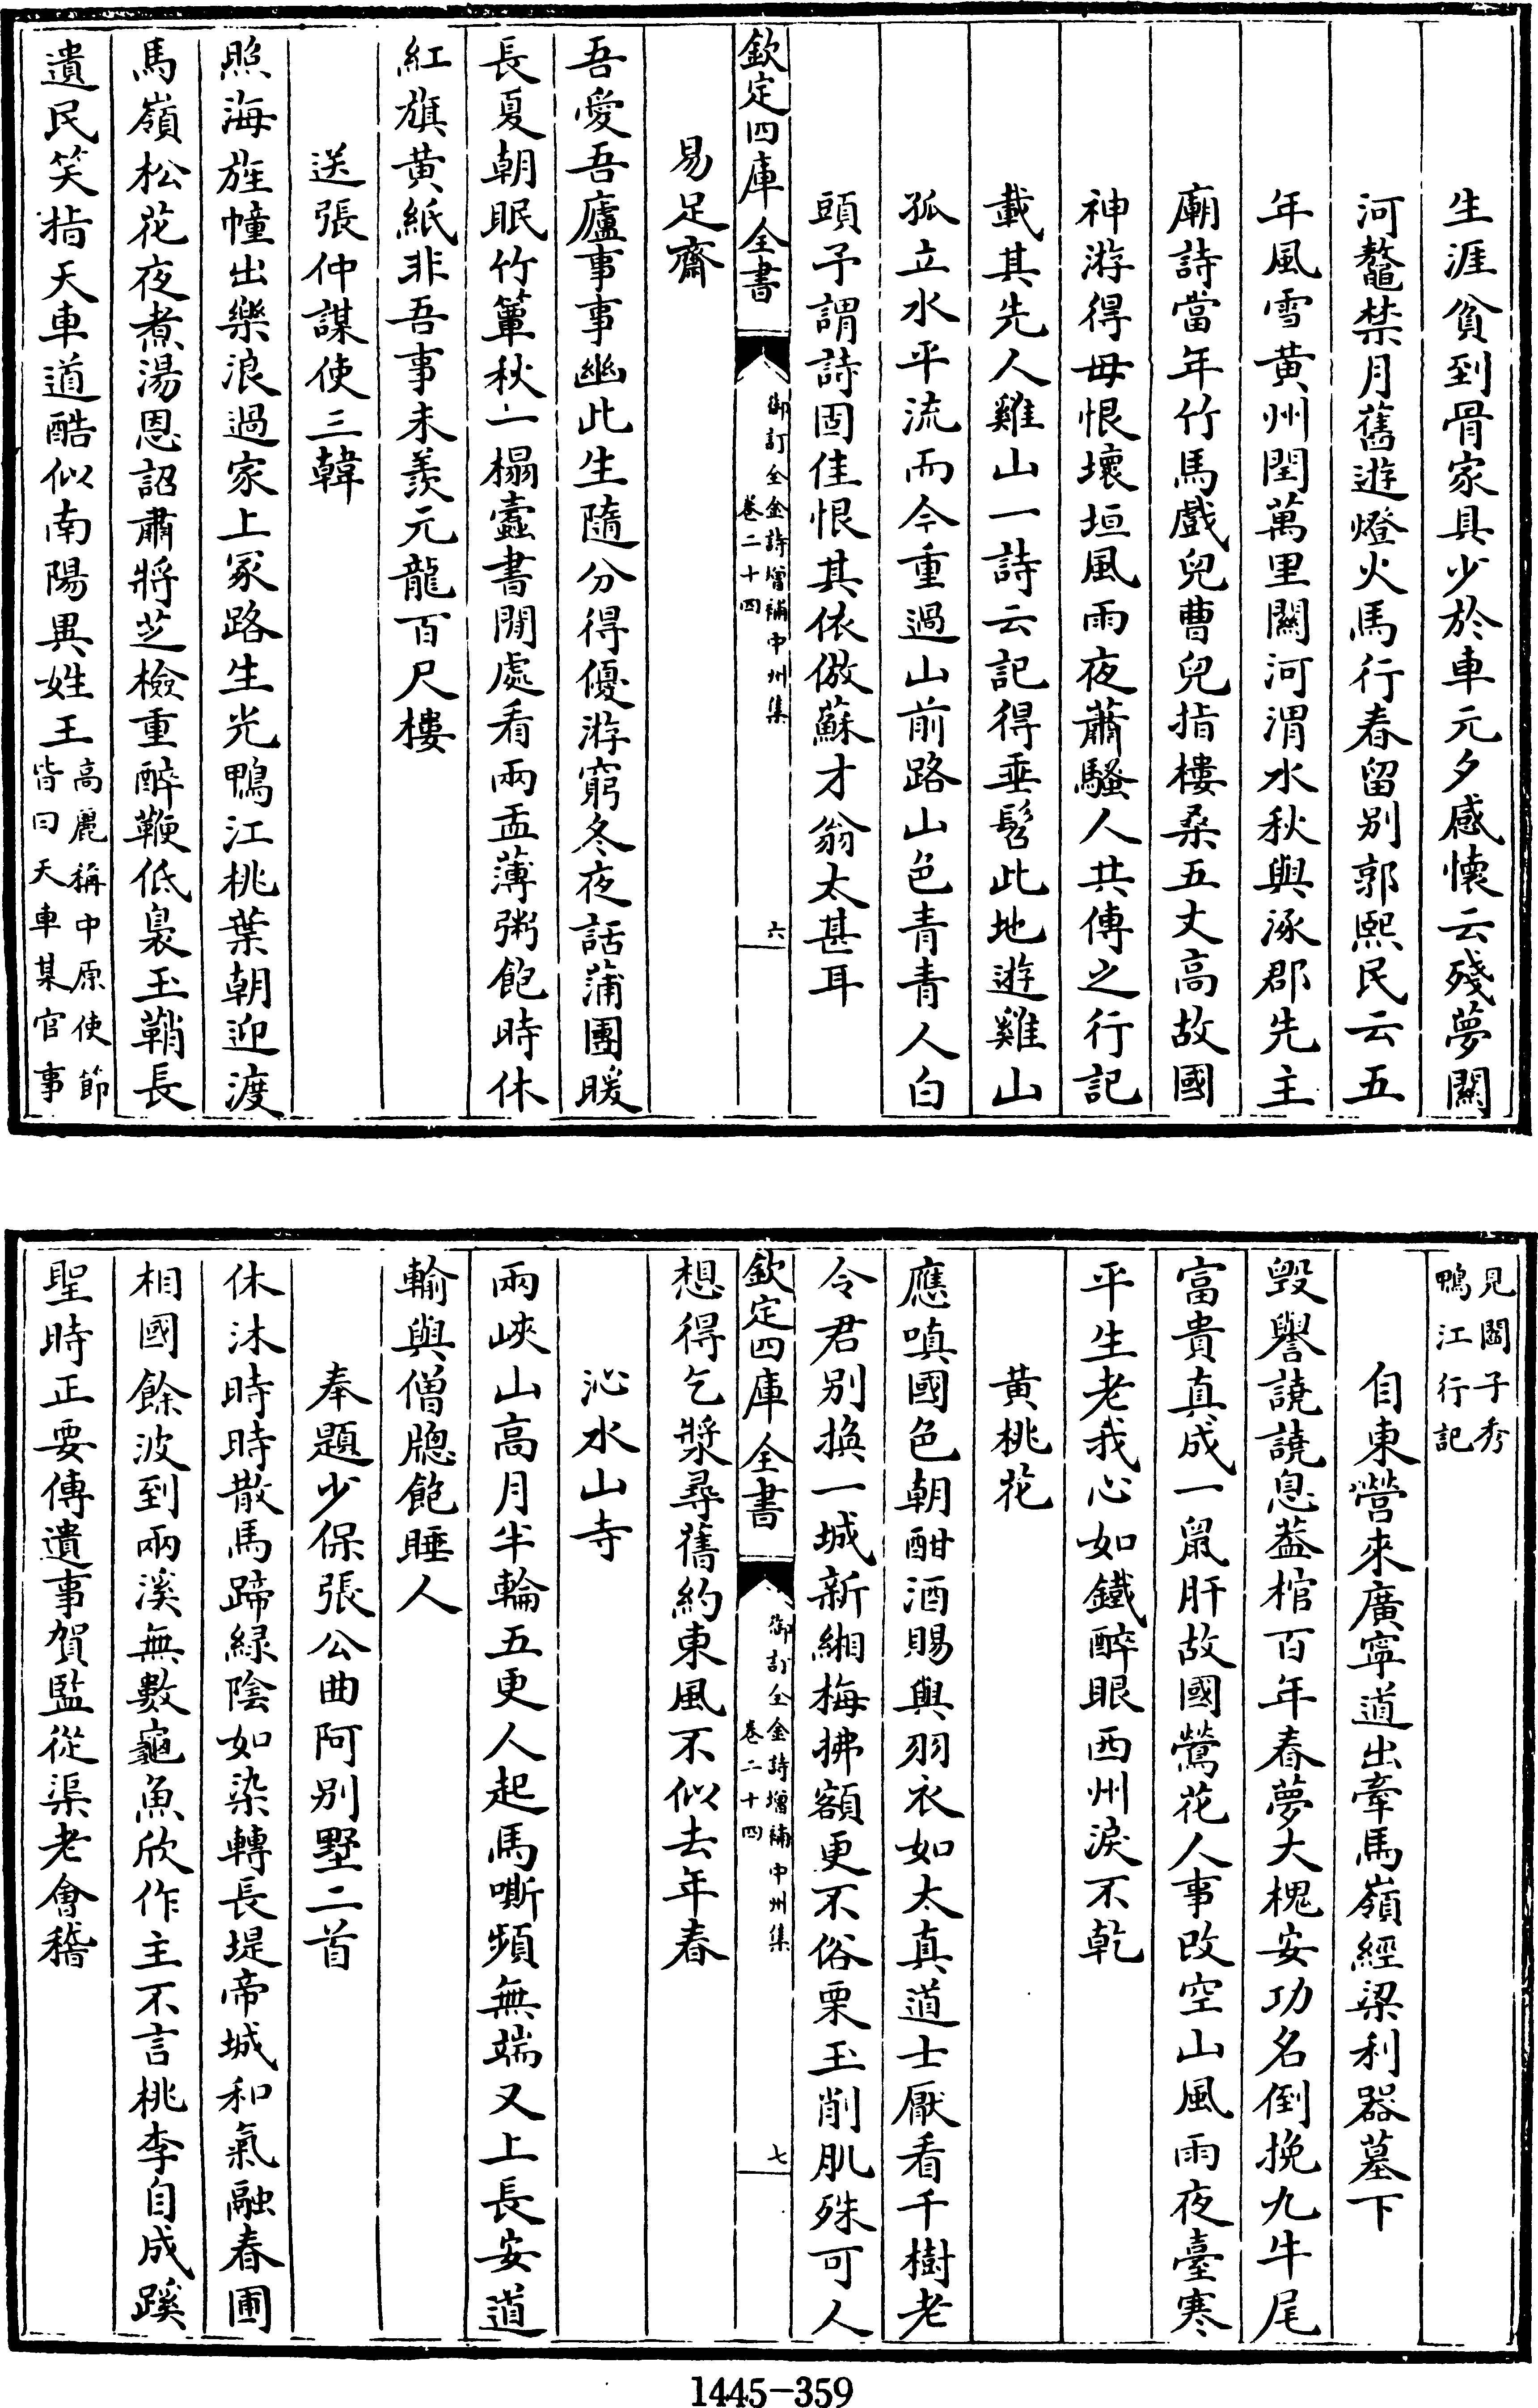 生涯貧到骨家具少於車元夕感懷云殘夢關
河鼇禁月舊遊燈火馬行春留别郭熙民云五
年風雪黄州閏萬里關河渭水秋與涿郡先主
廟詩當年竹馬戲兒曹兒指樓桑五丈高故國
神游得毋恨壞垣風雨夜蕭騷人共傳之行記
載其先人雞山一詩云記得垂髫此地遊雞山
孤立水平流而今重過山前路山色青青人白
頭予謂詩固佳恨其依倣蘇才翁太甚耳
欽定四庫全書
御訂全金詩增補中州集
卷二十四
六
易足齋
吾愛吾廬事事幽此生隨分得優游窮冬夜話蒲團暖
長夏朝眠竹簟秋一榻蠹書閒處看兩盂薄粥飽時休
紅旗黄紙非吾事未羨元龍百尺樓
送張仲謀使三韓
照海旌幢出樂浪過家上冢路生光鴨江桃葉朝迎渡
馬嶺松花夜煮湯恩詔肅將芝檢重醉鞭低裊玉鞘長
遺民笑指天車道酷似南陽異姓王
高麗稱中原使節
皆曰天車某官事
見閻子秀
鴨江行記
自東營來廣寧道出牽馬嶺經梁利器墓下
毁譽譊譊息蓋棺百年春夢大槐安功名倒挽九牛尾
富貴真成一鼠肝故國鶯花人事改空山風雨夜臺寒
平生老我心如鐵醉眼西州淚不乾
黄桃花
應嗔國色朝酣酒賜與羽衣如太真道士厭看千樹老
令君别換一城新緗梅拂額更不俗栗玉削肌殊可人
欽定四庫全書
御訂全金詩增補中州集
卷二十四
七
想得乞漿尋舊約東風不似去年春
沁水山寺
兩峽山高月半輪五更人起馬嘶頻無端又上長安道
輸與僧牕飽睡人
奉題少保張公曲阿别墅二首
休沐時時散馬蹄緑陰如染轉長堤帝城和氣融春圃
相國餘波到兩溪無數龜魚欣作主不言桃李自成蹊
聖時正要傳遺事賀監從渠老會稽
1445-359